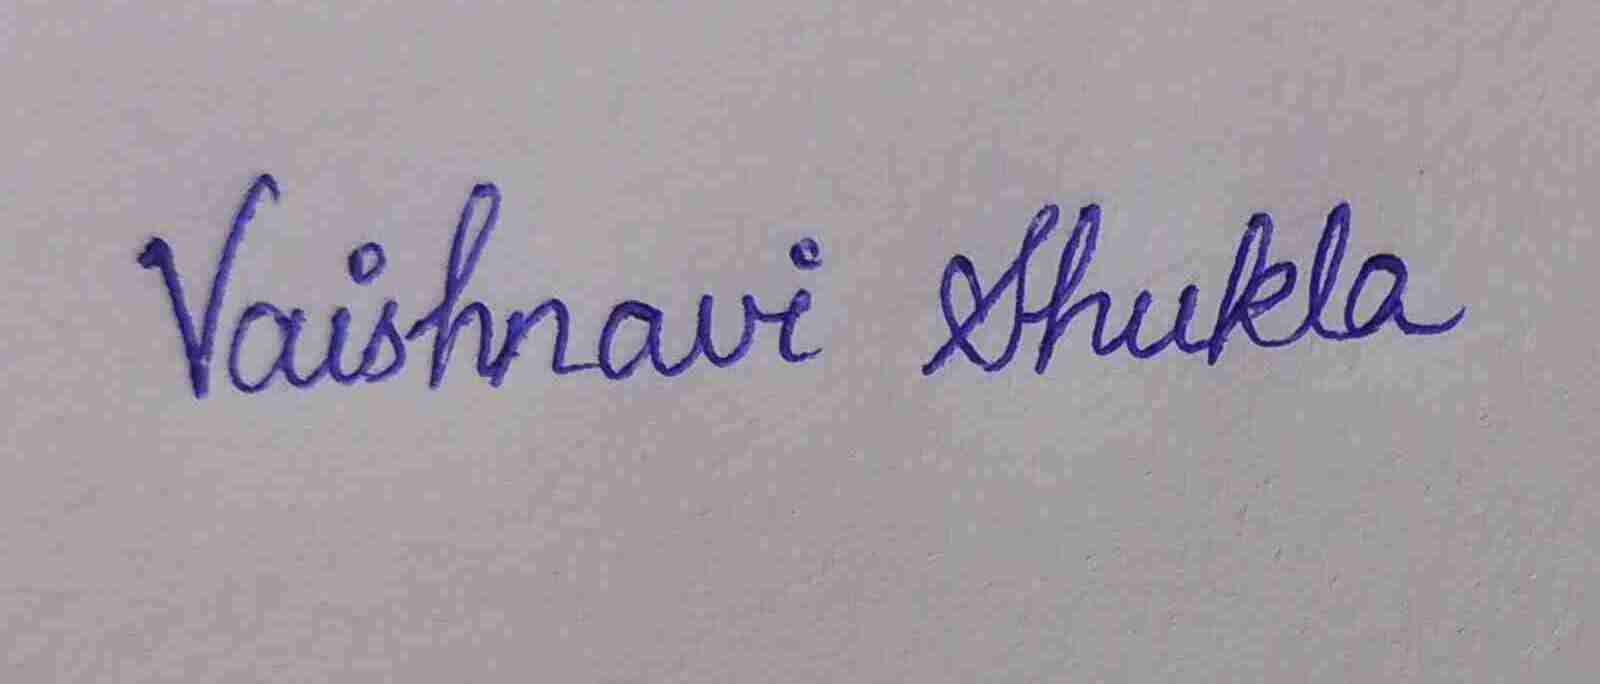 Vaishnavi Shukla